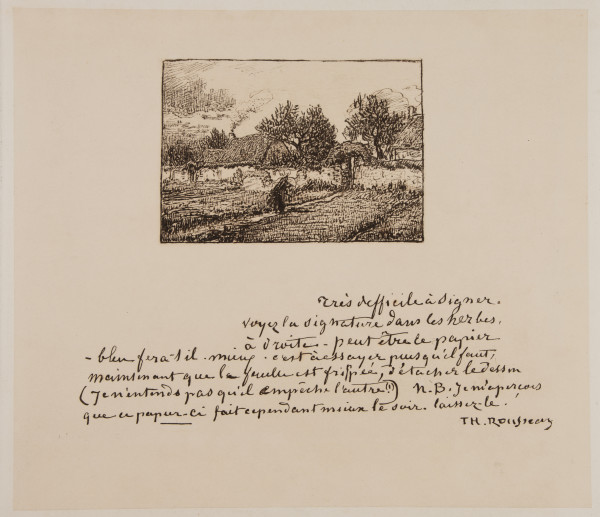 très difficile à signer.
voyez la signature dans les herbes,
à droite - peut être le papier
- bleu fera-t-il mieux. c'est à essayer puisqu'il faut,
maintenant que la feuille est frippée, détacher le dessin
(Je n'entends pas qu'il empêche l'autre!!) N.B. Je m'aperçois
que ce papier-ci fait cependant mieux le soir. laissez-le!
TH. Rousseau